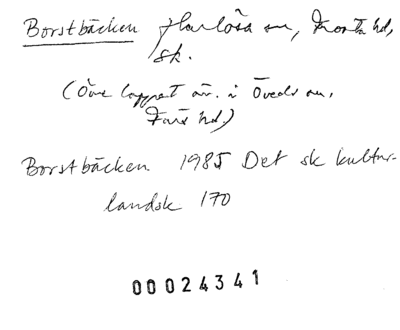 Borstbäcken Harlösa sn, Frosta hd,
Sk.
(Övre loppet äv. i Öveds sn,
Färs hd.)
Borstbäcken 1985 Det sk kultur-
landsk 170
00024341